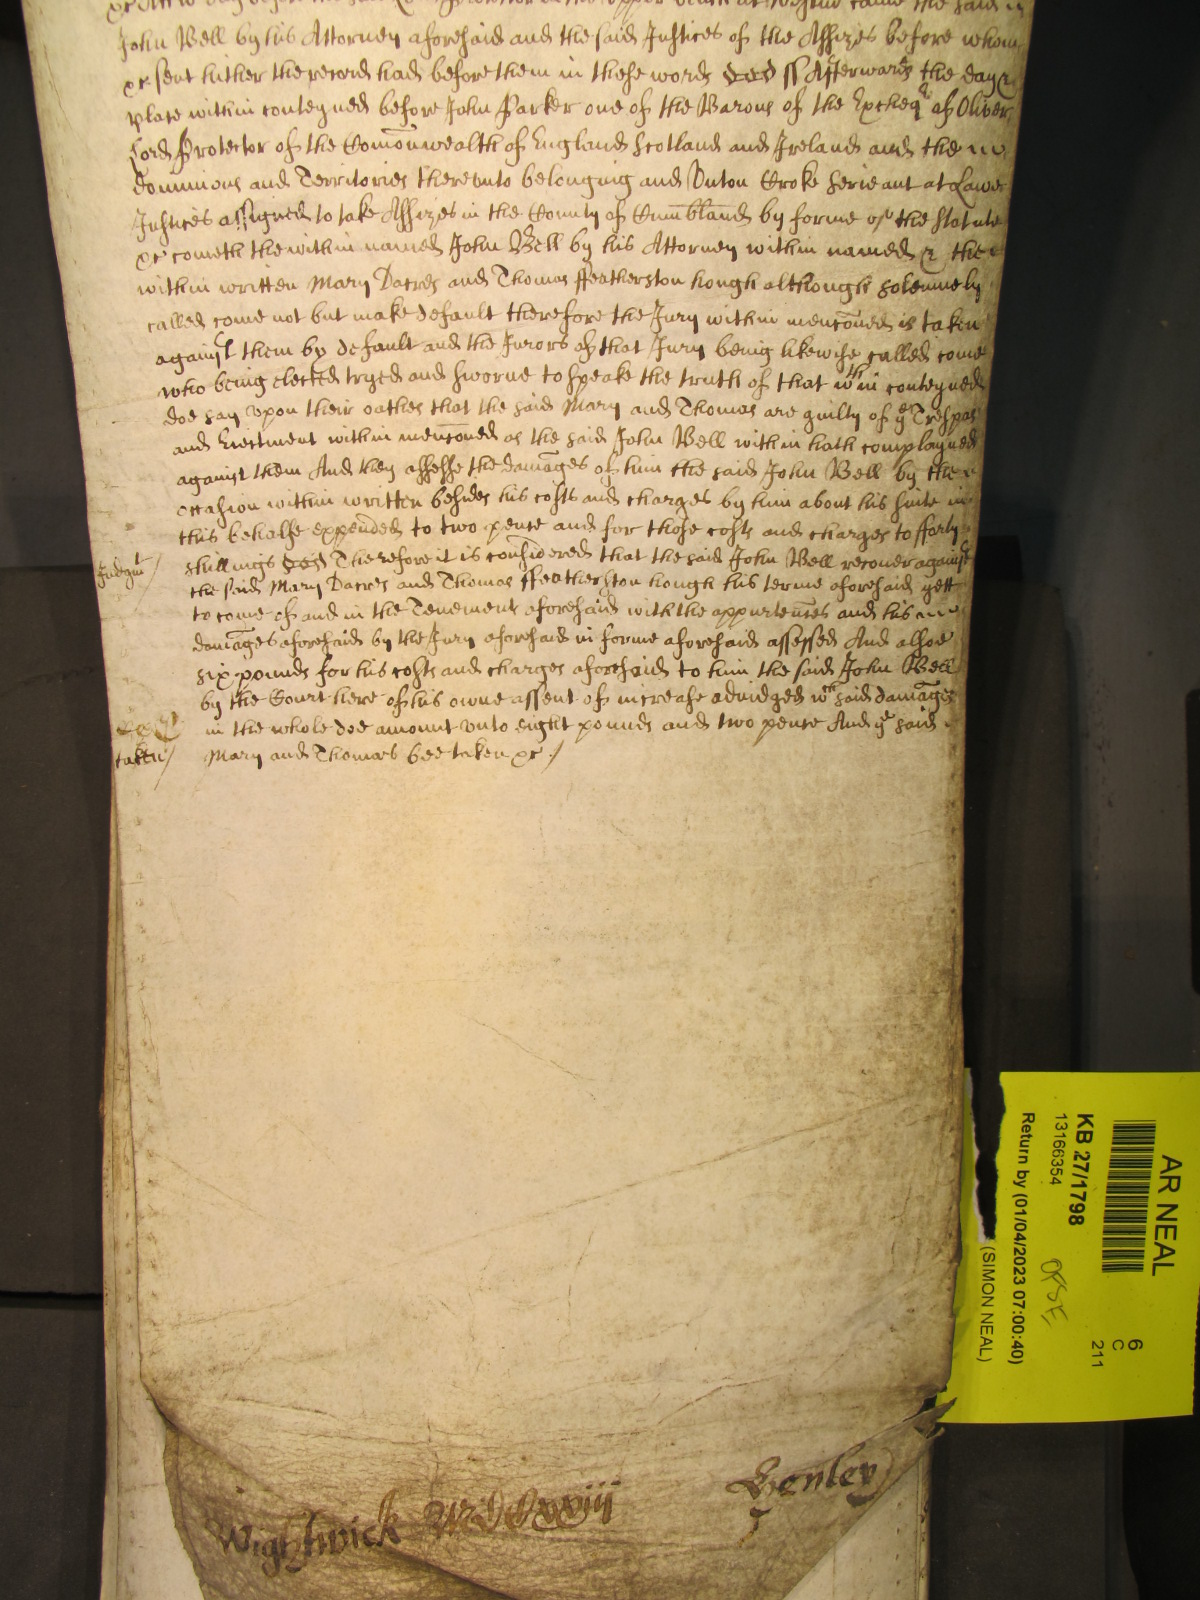 came the said
John Bell by his Attorney aforesaid and the said Justices of the Assizes before whom
xc sent hither the record had before them in these words ss Afterwards the day &
place within conteyned before John Parker one of the Barons of the Excheqr of Oliver
Lord Protector of the Com̄onwealth of England Scotland and Ireland and the
Dominions and Territories thereunto belonging and Unton Croke Serieant at Lawe
Justices assigned to take Assizes in the County of Cumb̄land by forme of the Statute
xc cometh the within named John Bell by his Attorney within named & the
within written Mary Dacres and Thomas ffeatherston hough although solemnely
called come not but make default therefore the Jury within menc̄oned is taken
against them by default and the Jurors of that Jury being likewise called come
who being elected tryed and sworne to speake the truth of that wthin conteyned
doe say vpon their oathes that the said Mary and Thomas are guilty of ye Trespas
and Eiectment within menc̄oned as the said John Bell within hath complayned
against them And they assesse the damages of him the said John Bell by the
occasion within written besides his costs and charges by him about his suite in
this behalfe expended to two pence and for those costs and charges to fforty
shillings Therefore it is considered that the said John Bell recover against
Judgmt
the said Mary Dacres and Thomas ffeatherston hough his terme aforesaid yett
to come of and in the Tenement aforesaid with the appurten̄ces and his
damages aforesaid by the Jury aforesaid in forme aforesaid assessed And alsoe
six pounds for his costs and charges aforesaid to him the said John Bell
by the Court here of his owne assent of increase adiudged wch said damages
in the whole doe amount vnto eight pounds and two pence And ye said
taken/ Mary and Thomas bee taken xc /
Wightwick
Henley
AR NEAL
6
C
211
KB 27/1798
13166354
Return by (01/04/2023 07:00:40)
(SIMON NEAL)